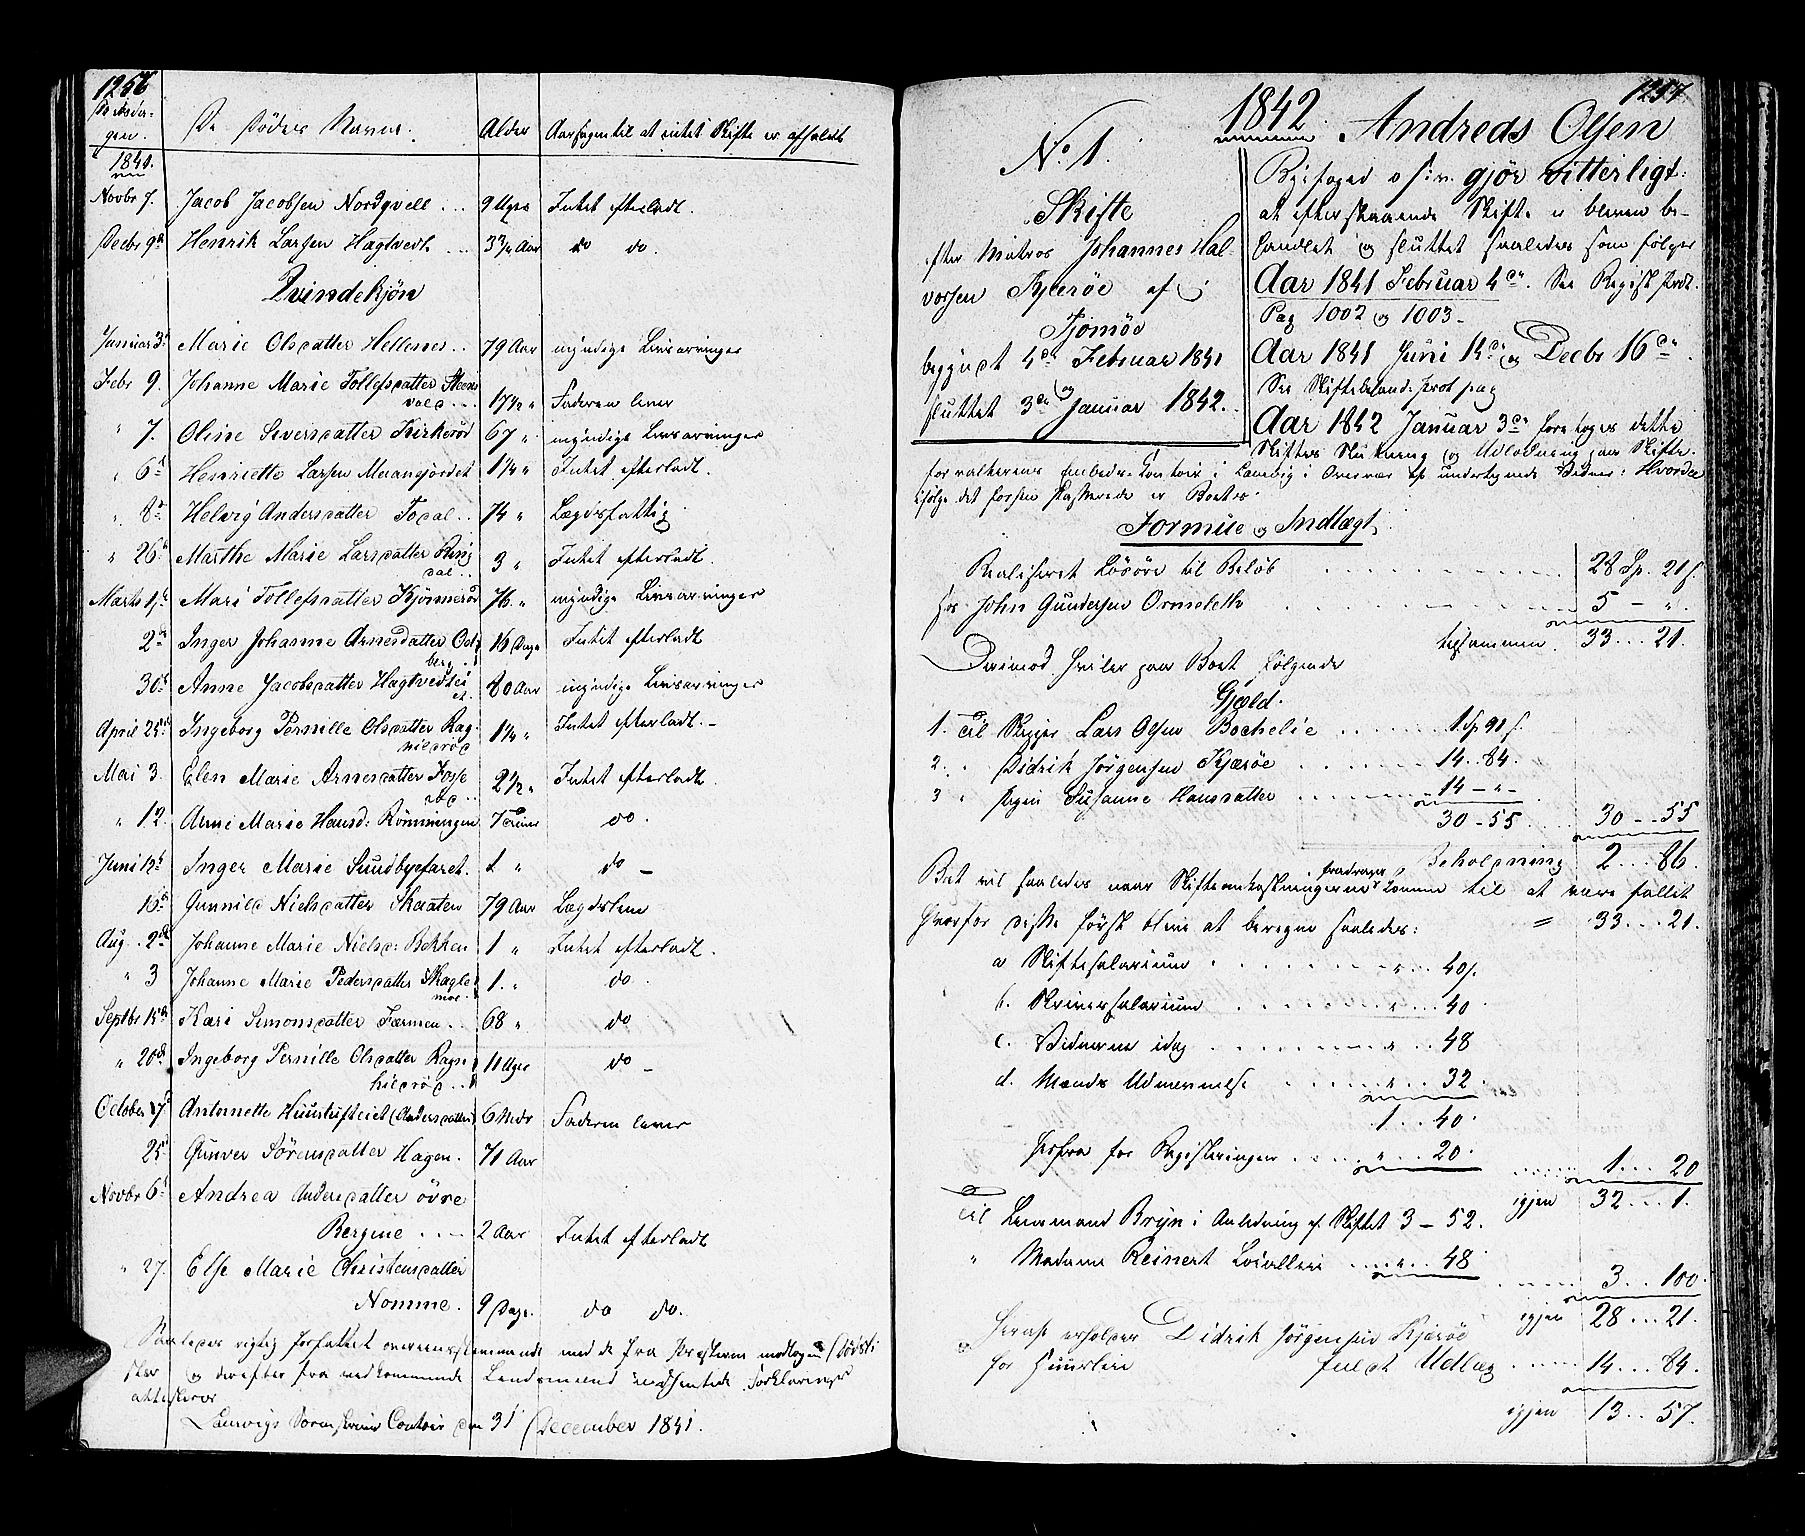 1256
De Dødes Navne. Alder Aarsagen til at intet Skifte er afholdt
1841.
Novbr 7. Jacob Jacobsen Nordqvell ... 9 Uger Intet efterladt.
Decbr 9d Henrik Larsen Hagtvedt ... 3 Aar do do.
Qvindekjøn
Januar 3. Marie Olsdatter Hellenes.. 79 Aar myndige Livsarvinger
Febr 9. Johanne Marie Tollefsdatter Steens
vold... 17 1/2 " Faderen lever
" 7. Oline Sversdatter Kirkerød 67 " myndige Livsarvinger
" 6d Henriette Larsen Meiangfjordet 1 1/4 " Intet efterladt.
" 8d Helvig Andersdatter Fodal.. 74 " Lægdsfattig
" 26d Marthe Marie Larsdatter Ring
dal.. 3 " Intet efterladt.
Marts 1. Mari Tollefsdatter Kjønnerød 76 " myndige Livsarvinger
2d Inger Johanne Arnesdatter Ød
berg 16 Dage Intet efterladt
30d Anne Jacobsdatter Hagtvedtei
et. 80 Aar myndige Livsarvinger
April 25d Ingeborg Pernille Olsdatter Rag
nilsrød 1 1/4 " Intet efterladt.-
Mai 3. Elen Marie Arnesdatter Fosse
rød.. 2 1/2 " Intet efterladt.
" 12. Anne Marie Hansd: Rønningen 7 Timer do.
Juni 12d Inger Marie Sundbyfaret. 1 " do -
16d Gunnild Nielsdatter Skaaten 79 Aar Lægdslem
Aug. 2d Johanne Marie Nielsd: Bekken 1 " Intet efterladt.
" 3 Johanne Marie Pedersdatter Skagle
moe. 1. " do.
Septbr 15d Kari Simonsdatter Farmen.. 68 " do
" 20d Ingeborg Pernille Olsdatter Ragn
hilsrød.. 11 Uger do -
October 17d Antonette Huustufteiet (Andersdatter) 6 Mdr Faderen lever
25d Gunver Sørensdatter Hagen. 71 Aar
Novbr 6d Andrea Andersdatter øvre
Bergine .... 2 Aar Intet efterladt
" 27. Else Marie Christensdatter
Nomme. 9 Dage. do do.
Saaledes rigtig forfattet overeensstemmende med de fra Præsterne modtagne Dødsli
ster og derefter fra vedkommende Lensmænd indhentede Forklaringer
attesterer
Laurvigs Sorenskriver Contoir den 31 December 1841.
1257
1842. Andreas Olsen
No 1.
Skifte
efter Matros Johannes Hal
vorsen Kjærøe af
Tjomøe
begyndt 4de Februar 1841
og
sluttet 3de Januar 1842.
Byefoged gjør vitterligt:
at efterskrevne Skifte er bleven be-
handlet og sluttet saaledes som følger
Aar 1841 Februar 4de. See Regist. Prot.
Pag 1002 og 1003-
Aar 1841 Juni 14de og Decbr 16de.
See Skiftebehandl: Prot pag
Aar 1842 Januar 3de foretoges dette
Skiftes Slutning og Udlodning paa Skifte-
forvalterens Embeds-Contoir i Laurvig i Overvær af undertegnede Vidner: Hvorda
ifølge det forhen passerede er Boets.
Formue og Indtægt.
Realiseret Løsøre til Beløb 28 Sp. 21 s.
hos John Gundersen Ormelet 5 - ".
tilsammen. 33... 21.
Derimod hviler paa Boet følgende
Gjæld.
1. Til Skipper Lars Olsen Bochelie ....... 1 Sp 91 s.
2. " Didrik Jørgensen Kjærøe ....... 14. 84.
3 " Pigen Susanne Hansdatter ....... 14 - " -
30 - 55 30 - - 55
Beholdning 2... 86.
Boet vil saaledes naar Skifteomkostningerne fradrages komme til at være fallit
hvorfor disse først blive at beregne saaledes: = 33... 21.
a Skiftesalarium ".. 40 s.
b. Skriversalarium ".. 40
c. Vidnerne idag ".. 48
d. Mænds Udnævnelse ".. 32
1.. 40.
herfra for Registeringen ".. 20. 1... 20
igjen 32... 1.
Til Lensmand Bryn i Anledning af Skiftet 3 - 52.
" Madame Reinert Localleie ".. 48 3.. 100.
igjen 28... 21.
Heraf erholder Didrik Jørgensen Kjærøe
for Huusleie fuldt Udlæg 14... 84.
igjen 13.. 57.